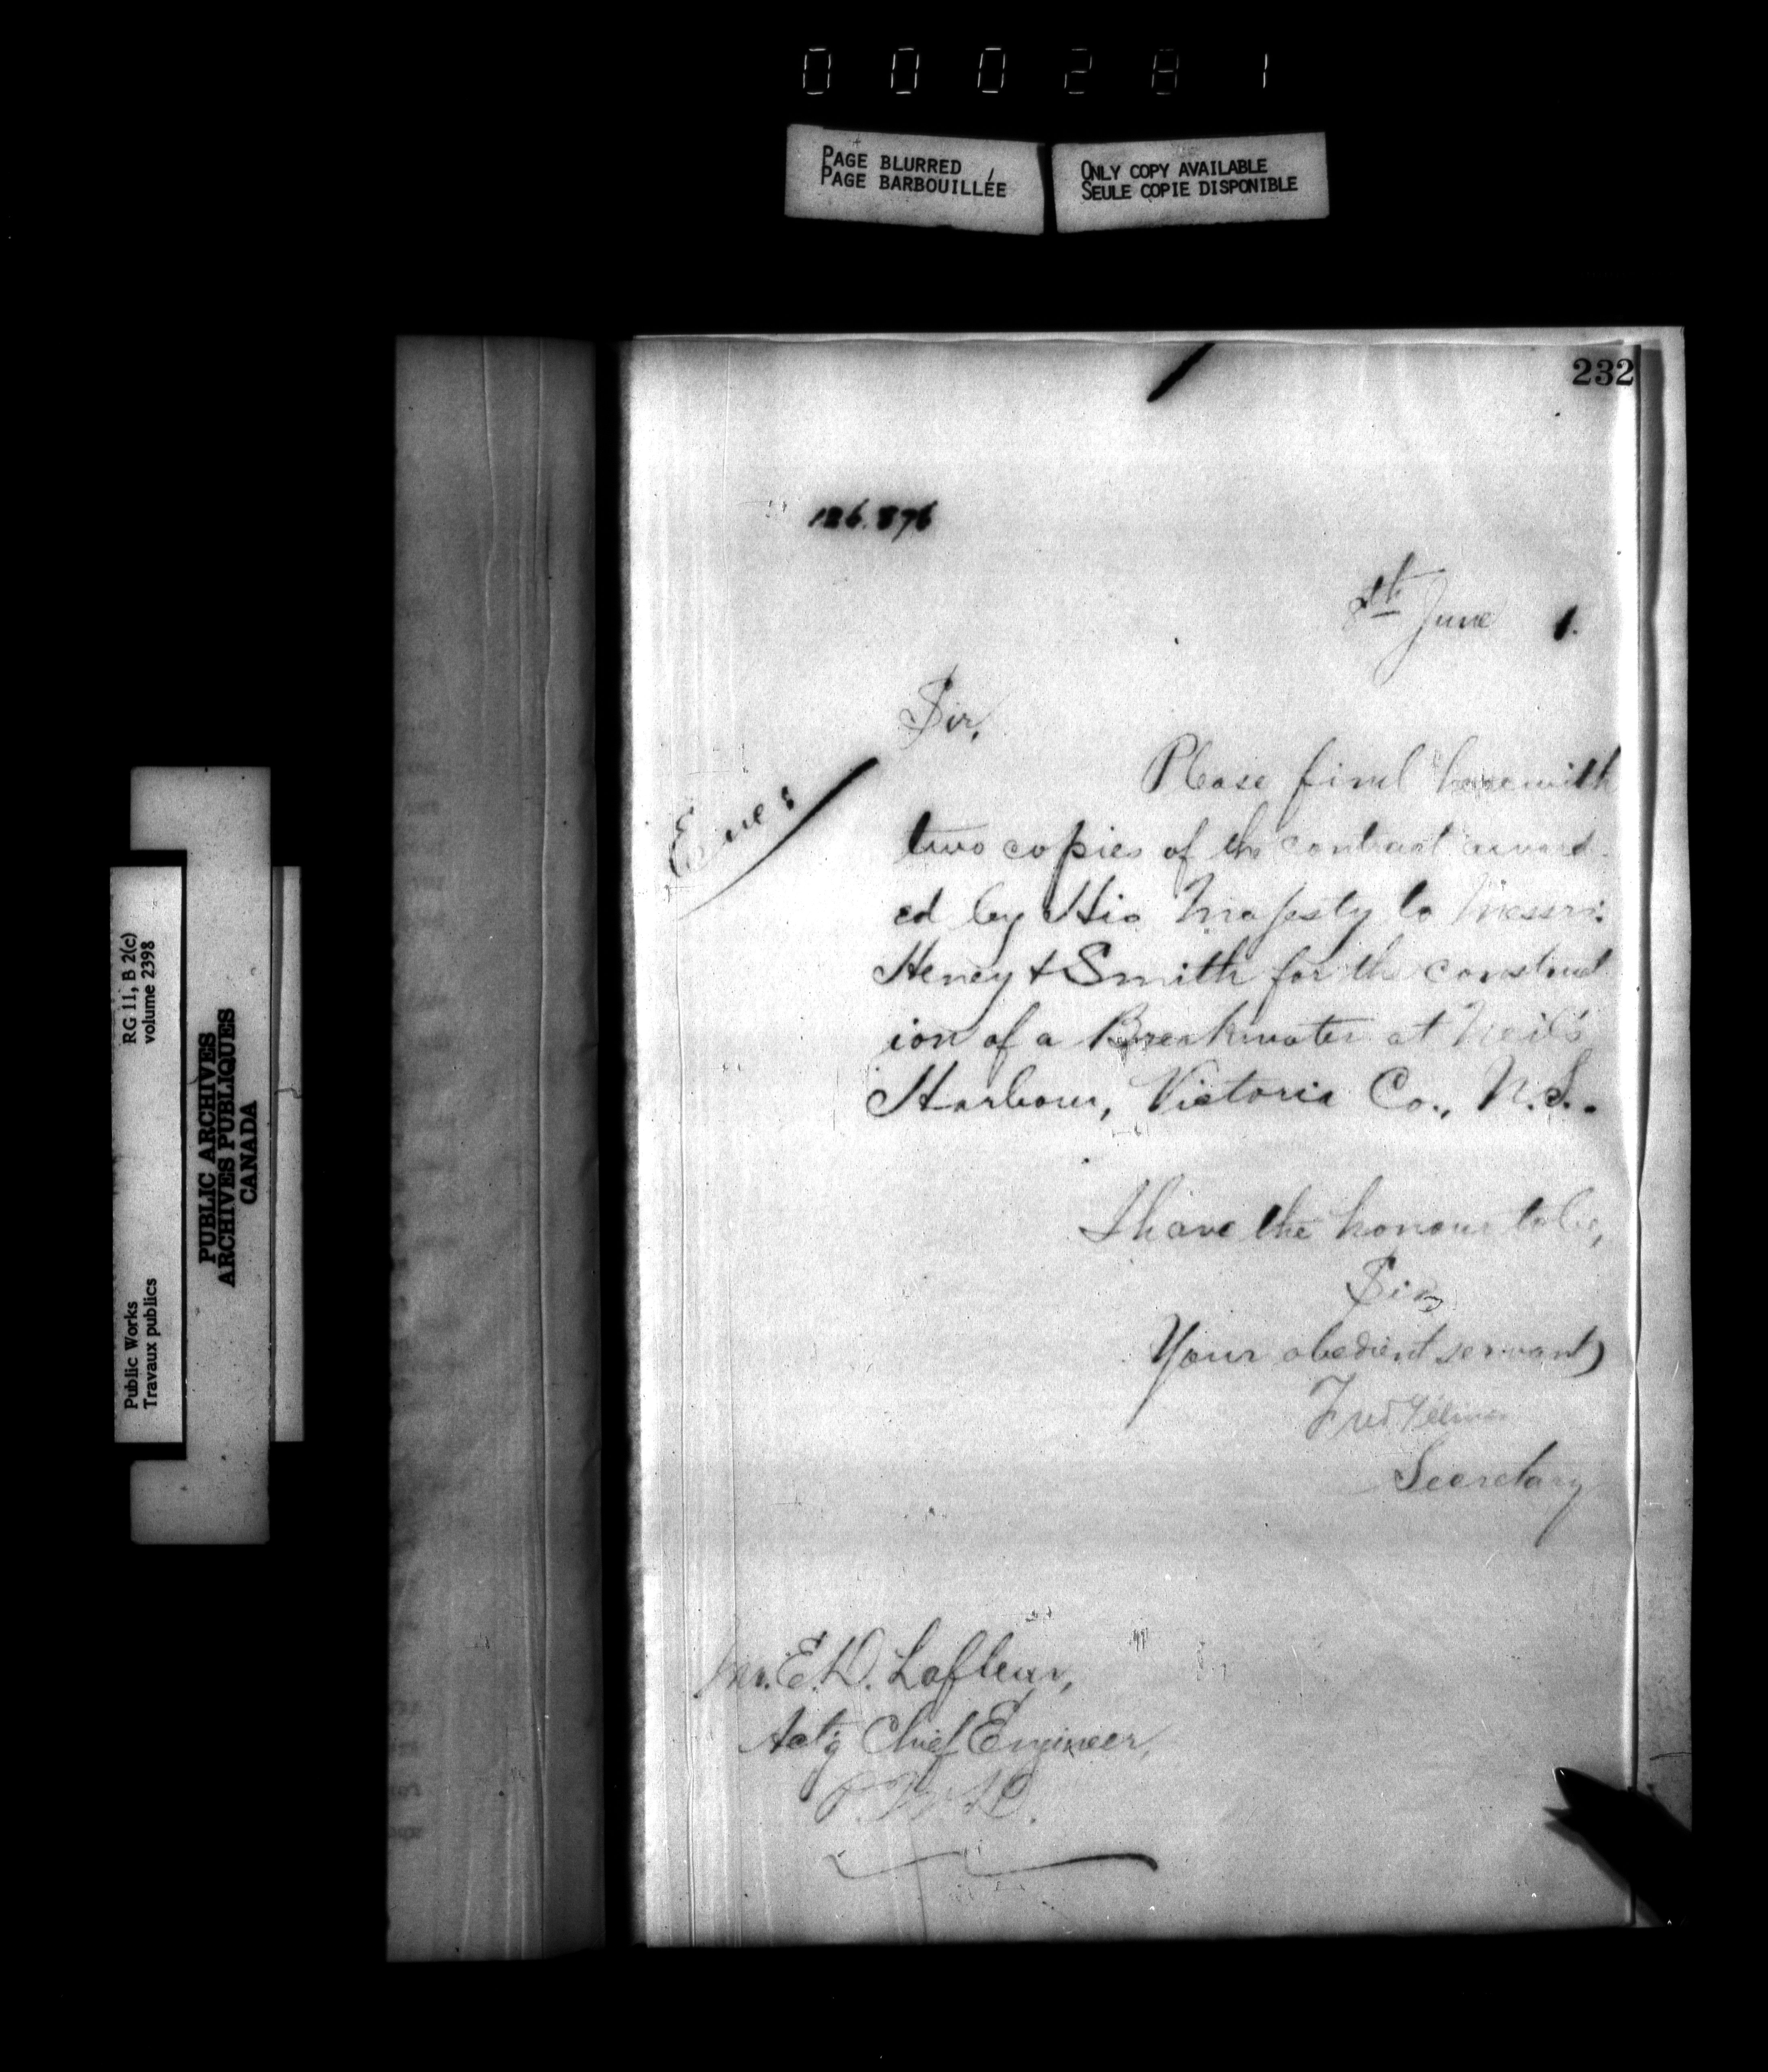 0 0 0 2 8 1
PAGE BLURRED
PAGE BARBOUILLÉE
ONLY COPY AVAILABLE
SEULE COPIE DISPONIBLE
232
126.876
8th June 1.
Sir,
Please find herewith
two copies of the contract award-
ed by His Majesty to Messrs.
Heney & Smith for the construct
ion of a Breakwater at Neil's
Harbour, Victoria Co., N.S..
I have the honour to be,
Sir,
Your obedient servant,
Fred
Secretary
Mr. E. D. Lafleur,
Act'g Chief Engineer,
P.W.D.
RG 11, B 2(c)
volume 2398
Public Works
Travaux publics
PUBLIC ARCHIVES
ARCHIVES PUBLIQUES
CANADA